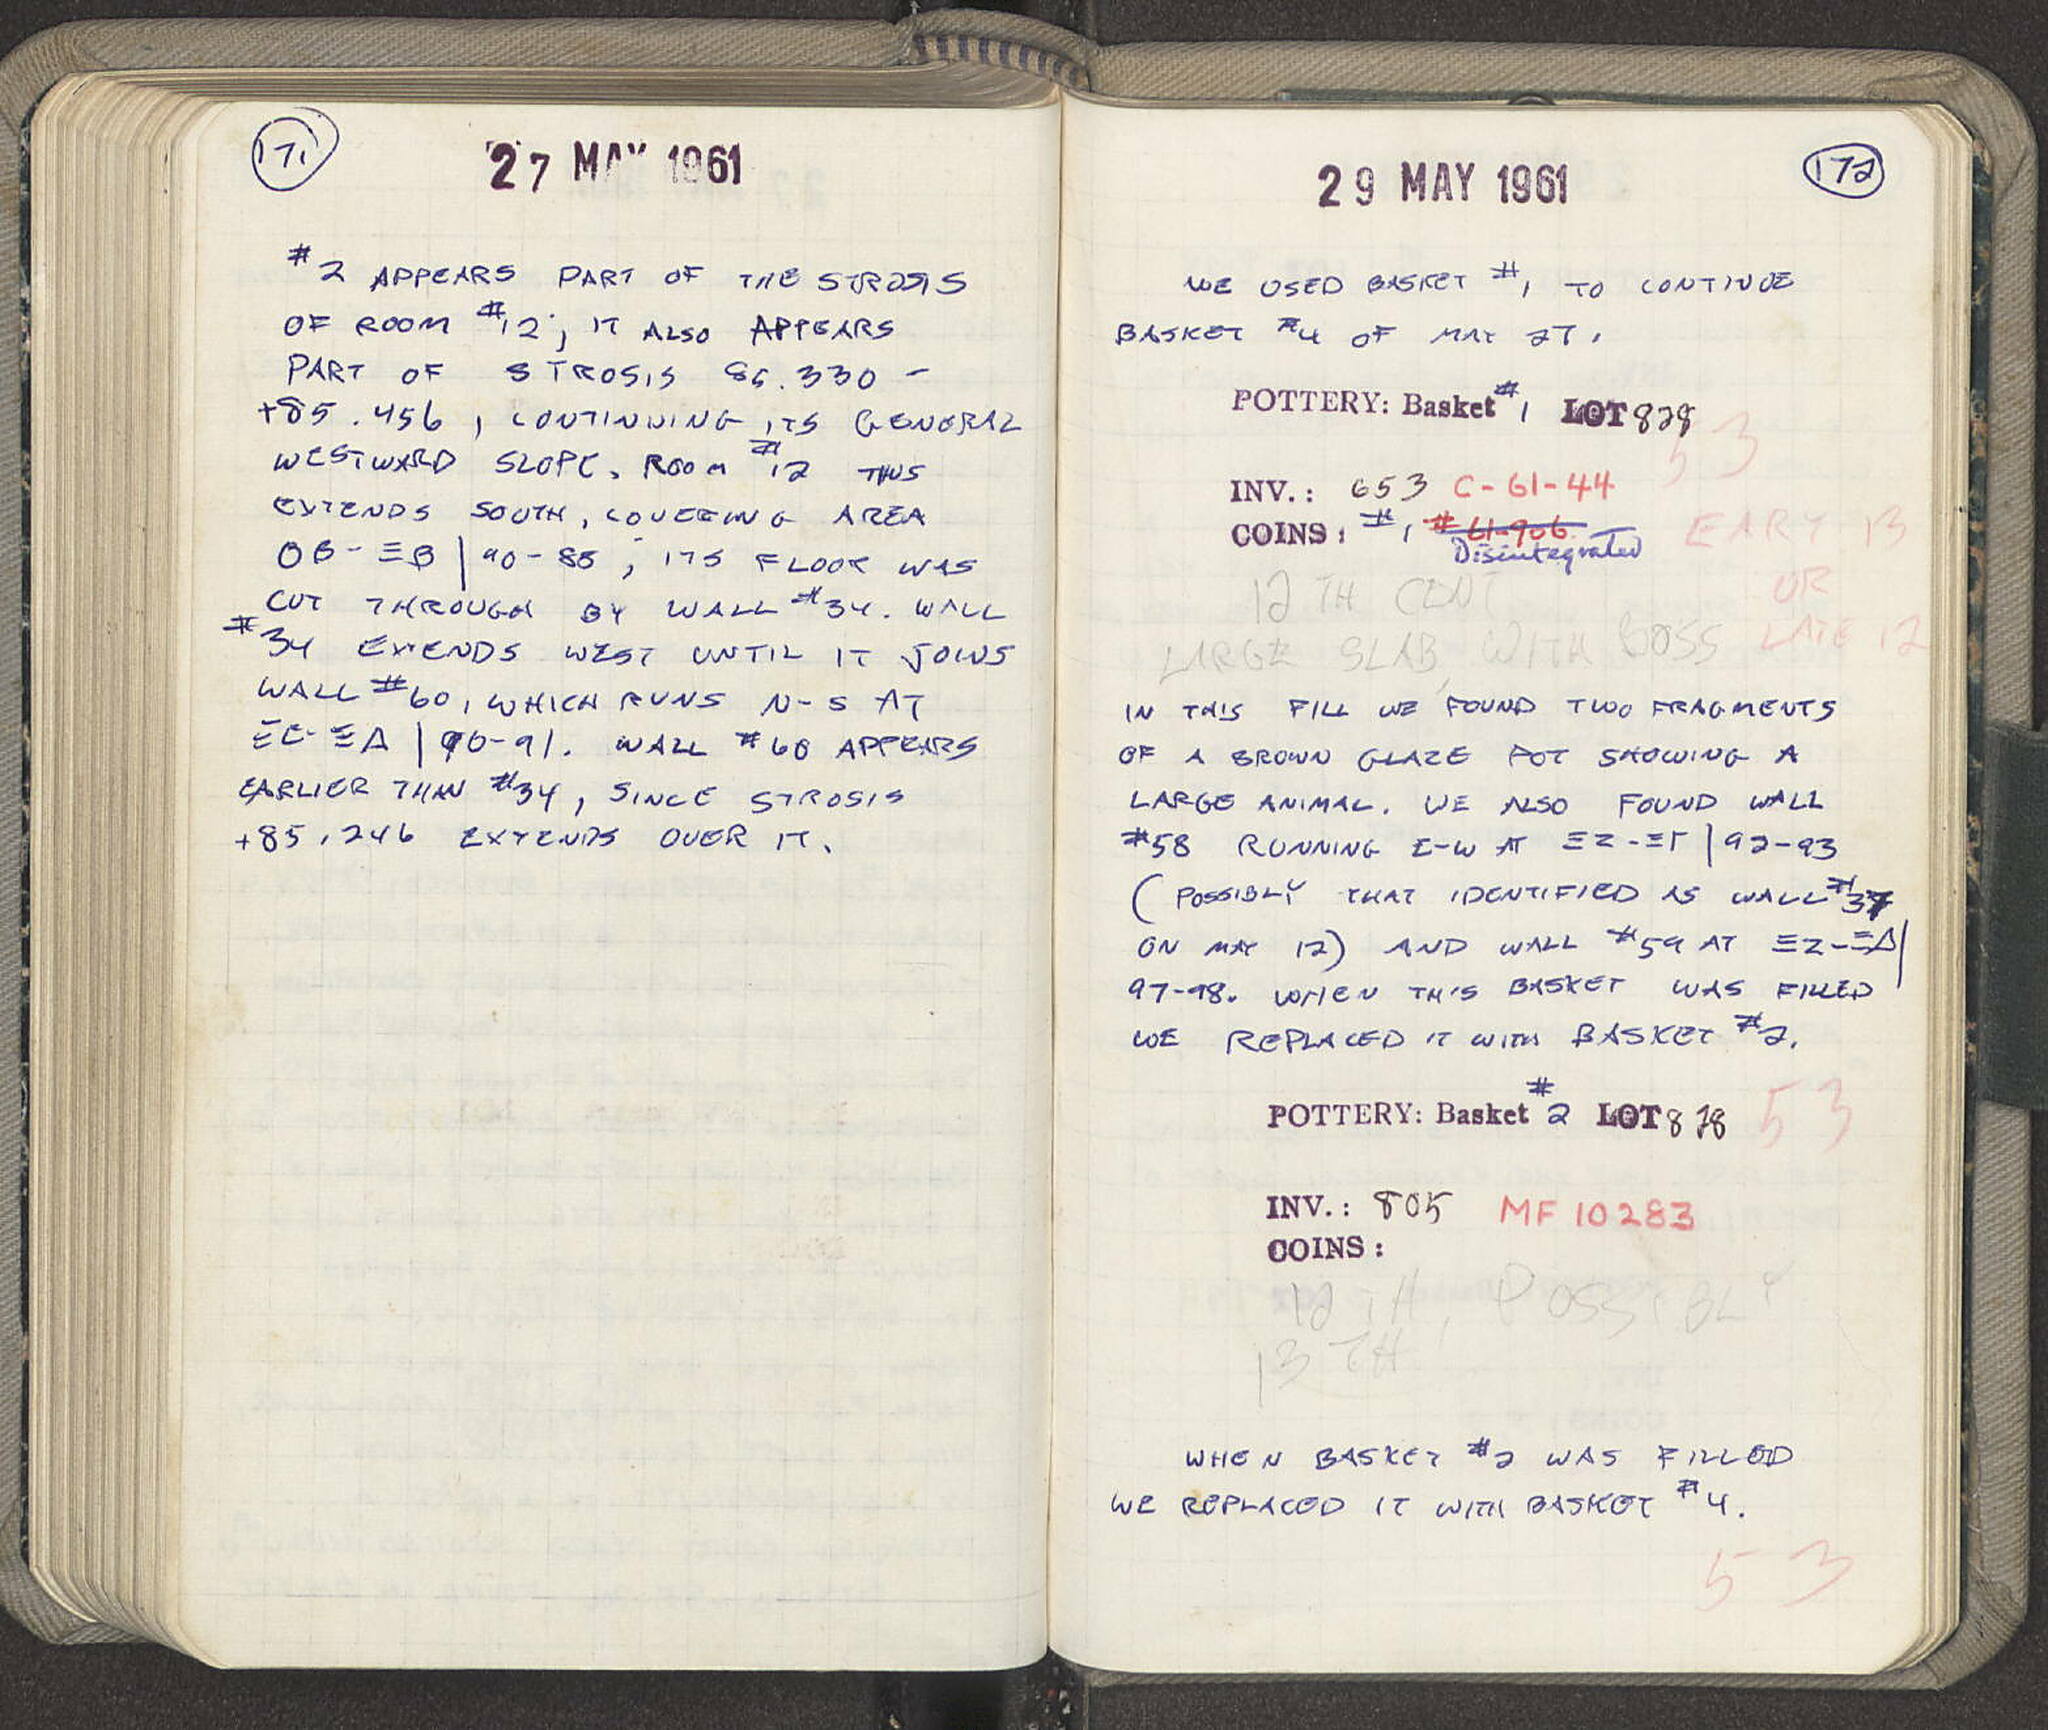 171
27 MAY 1961
#2 APPEARS PART OF THE STROSIS
OF ROOM #12; IT ALSO APPEARS
PART OF STROSIS 85.330 –
+85.456, CONTINUING ITS GENERAL
WESTWARD SLOPE. ROOM #12 THUS
EXTENDS SOUTH, COVERING AREA
ΟΒ-ΞΒ | 90-88; ITS FLOOR WAS
CUT THROUGH BY WALL #34. WALL
#34 EXTENDS WEST UNTIL IT JOINS
WALL #60, WHICH RUNS N-S AT
ΞΕ-ΞΔ | 90-91. WALL #60 APPEARS
EARLIER THAN #34, SINCE STROSIS
+85.246 EXTENDS OVER IT.
172
29 MAY 1961
WE USED BASKET #1 TO CONTINUE
BASKET #4 OF MAY 27.
POTTERY: Basket #1 LOT 828
53
INV.: 653 C-61-44
COINS: #1 #61-906
Disintegrated
EARY 13
OR
LATE 12
12TH CENT
LARGE SLAB, WITH BOSS
IN THIS FILL WE FOUND TWO FRAGMENTS
OF A BROWN GLAZE POT SHOWING A
LARGE ANIMAL. WE ALSO FOUND WALL
#58 RUNNING E-W AT ΞΖ-ΞΓ | 92-93
(POSSIBLY THAT IDENTIFIED AS WALL #37
ON MAY 12) AND WALL #59 AT ΞΖ-ΞΔ |
97-98. WHEN THIS BASKET WAS FILLED
WE REPLACED IT WITH BASKET #2.
POTTERY: Basket #2 LOT 828 53
INV.: 805 MF 10283
COINS:
12TH, POSSIBLY
13TH
WHEN BASKET #2 WAS FILLED
WE REPLACED IT WITH BASKET #4.
53